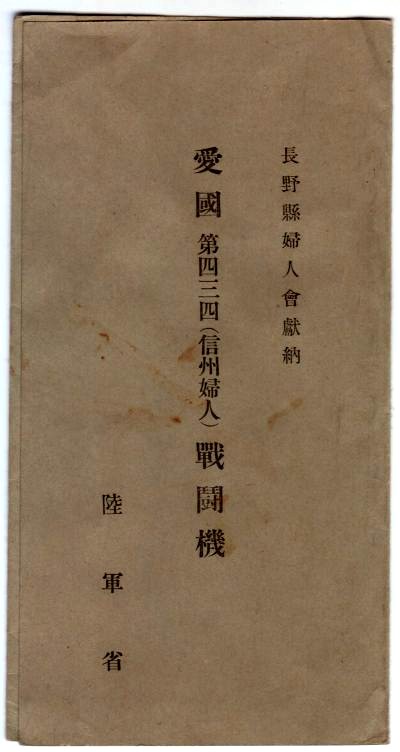 長野縣婦人會獻納
愛國第四三四(信州婦人)戰鬪機
陸軍省